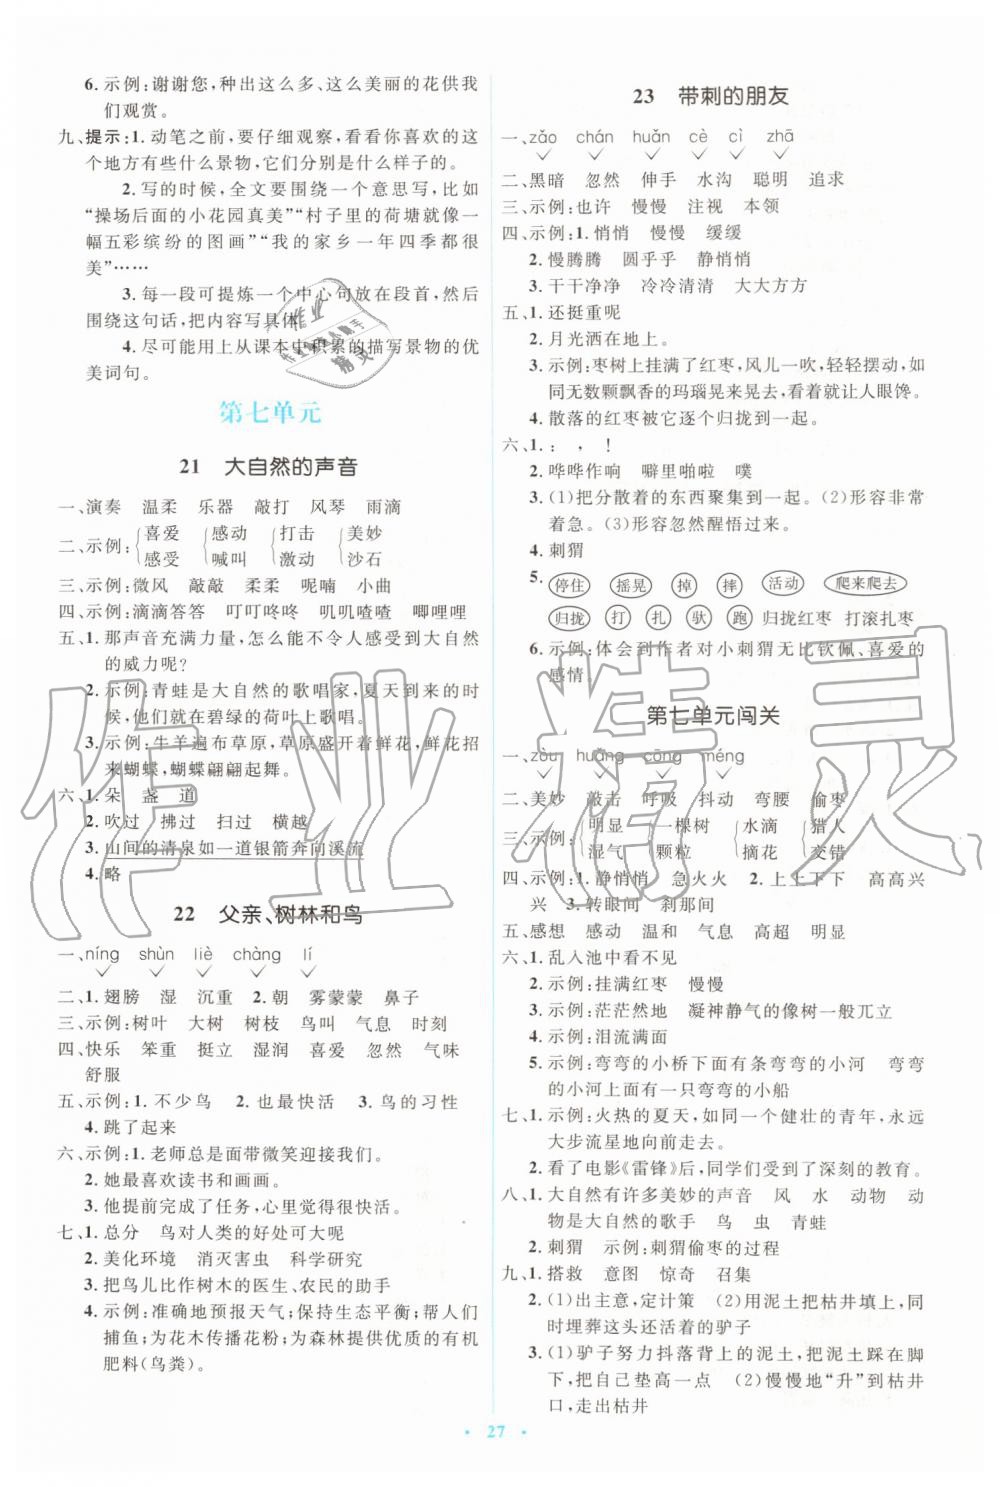 6. 示例:谢谢您,种出这么多、这么美丽的花供我
们观赏。
九、提示:1. 动笔之前,要仔细观察,看看你喜欢的这
个地方有些什么景物,它们分别是什么样子的。
2. 写的时候,全文要围绕一个意思写,比如
“操场后面的小花园真美”“村子里的荷塘就像一
幅五彩缤纷的图画”“我的家乡一年四季都很
美”……
3. 每一段可提炼一个中心句放在段首,然后
围绕这句话,把内容写具体。
4. 尽可能用上从课本中积累的描写景物的优
美词句。
第七单元
21 大自然的声音
一、演奏 温柔 乐器 敲打 风琴 雨滴
二、示例: 喜爱 感受 感动 喊叫 打击 激动 美妙 沙石
三、示例:微风 敲敲 柔柔 呢喃 小曲
四、示例:滴滴答答 叮叮咚咚 叽叽喳喳 唧哩哩
五、1. 那声音充满力量,怎么能不令人感受到大自然
的威力呢?
2. 示例:青蛙是大自然的歌唱家,夏天到来的时
候,他们就在碧绿的荷叶上歌唱。
3. 示例:牛羊遍布草原,草原盛开着鲜花,鲜花招
来蝴蝶,蝴蝶翩翩起舞。
六、1. 朵 盏 道
2. 吹过 拂过 扫过 横越
3. 山间的清泉如一道银箭奔向溪流
4. 略
22 父亲、树林和鸟
一、níng shùn liè chàng lí
二、1. 翅膀 湿 沉重 2. 朝 雾蒙蒙 鼻子
三、示例:树叶 大树 树枝 鸟叫 气息 时刻
四、快乐 笨重 挺立 湿润 喜爱 忽然 气味
舒服
五、示例:1. 不少鸟 2. 也最快活 3. 鸟的习性
4. 跳了起来
六、示例:1. 老师总是面带微笑迎接我们。
2. 她最喜欢读书和画画。
3. 他提前完成了任务,心里觉得很快活。
七、1. 总分 鸟对人类的好处可大呢
2. 美化环境 消灭害虫 科学研究
3. 把鸟儿比作树木的医生、农民的助手
4. 示例:准确地预报天气;保持生态平衡;帮人们
捕鱼;为花木传播花粉;为森林提供优质的有机
肥料(鸟粪)。
23 带刺的朋友
一、zǎo chán huǎn cè cì zhā
二、黑暗 忽然 伸手 水沟 聪明 追求
三、示例:也许 慢慢 注视 本领
四、示例:1. 悄悄 慢慢 缓缓
2. 慢腾腾 圆乎乎 静悄悄
3. 干干净净 冷冷清清 大大方方
五、1. 还挺重呢
2. 月光洒在地上。
3. 示例:枣树上挂满了红枣,风儿一吹,轻轻摆动,如
同无数颗飘香的玛瑙晃来晃去,让人眼馋。
4. 散落的红枣被它逐个归拢到一起。
六、1. : , !
2. 哗哗作响 噼里啪啦 噗
3. (1)把分散着的东西聚集到一起。(2)形容非常
着急。(3)形容忽然醒悟过来。
4. 刺猬
5. 停住 摇晃 掉 摔 活动 爬来爬去
归拢 打 扎 驮 跑 归拢红枣 打滚扎枣
6. 示例:体会到作者对小刺猬无比钦佩、喜爱的
感情。
第七单元闯关
一、zòu huǎng cōng méng
二、美妙 敲击 呼吸 抖动 弯腰 偷枣
三、示例: 明显 湿气 一棵树 颗粒 水滴 摘花 猎人 变错
四、示例:1. 静悄悄 急火火 2. 上上下下 高高兴
兴 3. 转眼间 刹那间
五、感想 感动 温和 气息 高超 明显
六、1. 乱入池中看不见
2. 示例:挂满红枣 慢慢
3. 示例:茫茫然地 凝神静气的像树一般兀立
4. 示例:泪流满面
5. 示例:弯弯的小桥下面有条弯弯的小河 弯弯
的小河上面有一只弯弯的小船
七、1. 示例:火热的夏天,如同一个健壮的青年,永远
大步流星地向前走去。
2. 看了电影《雷锋》后,同学们受到了深刻的教育。
八、1. 大自然有许多美妙的声音 风 水 动物 动
物是大自然的歌手 鸟 虫 青蛙
2. 刺猬 示例:刺猬偷枣的过程
九、1. 搭救 意图 惊奇 召集
2. (1)出主意,定计策 (2)用泥土把枯井填上,同
时埋葬这头还活着的驴子
3. (1)驴子努力抖落背上的泥土,把泥土踩在脚
下,把自己垫高一点 (2)慢慢地“升”到枯井
口,走出枯井
27
作业精灵